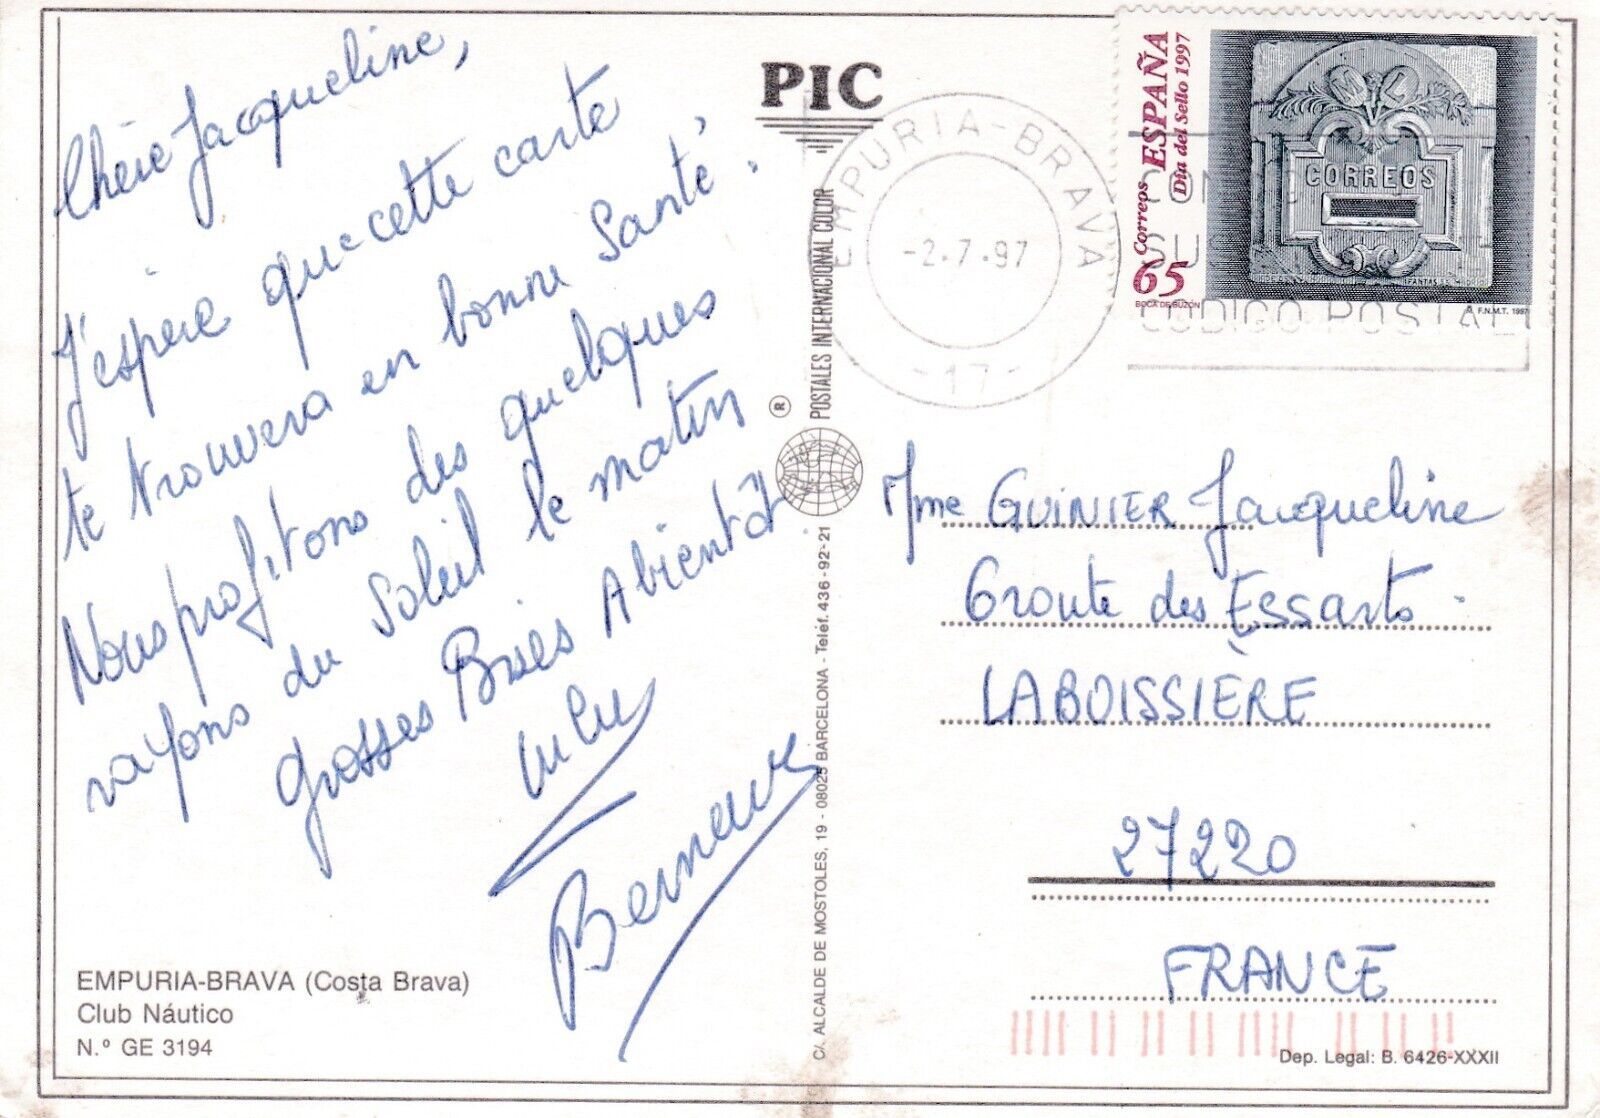 Chère Jacqueline,
J'espère que cette carte
te trouvera en bonne santé.
Nous profitons des quelques
rayons du soleil le matin
Grosses Bises A bientôt
Lulu
EMPURIA-BRAVA (Costa Brava)
Club Náutico
N.º GE 3194
PIC
C/. ALCALDE DE MOSTOLES, 19 - 08025 BARCELONA - Teléf. 436-92-21
® POSTALES INTERNACIONAL COLOR
EMPURIA-BRAVA
-2.7.97
-17-
CODIGO POSTAL
65 Correos ESPAÑA
Día del Sello 1997
CORREOS
BOCA DE BUZÓN
F.N.M.T. 1997
Mme GUINIER Jacqueline
6 route des Essarts
LABOISSIÈRE
27220
FRANCE
Dep. Legal: B. 6426-XXXII